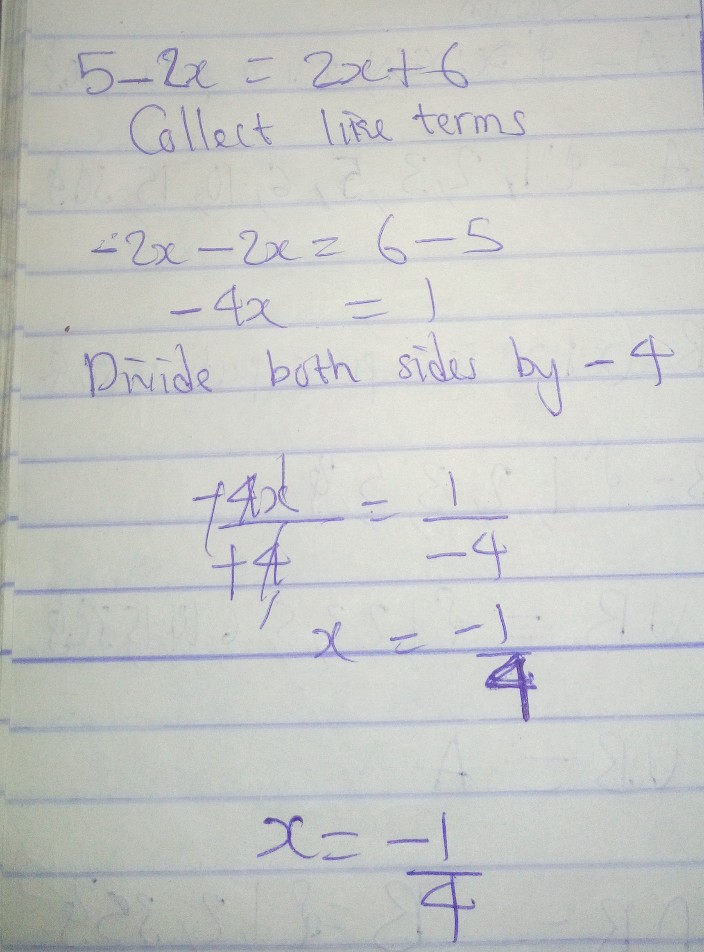 5-2x = 2x+6
Collect like terms
-2x-2x = 6-5
-4x = 1
Divide both sides by -4
-4x/-4 = 1/-4
x = -1/4
x = -1/4